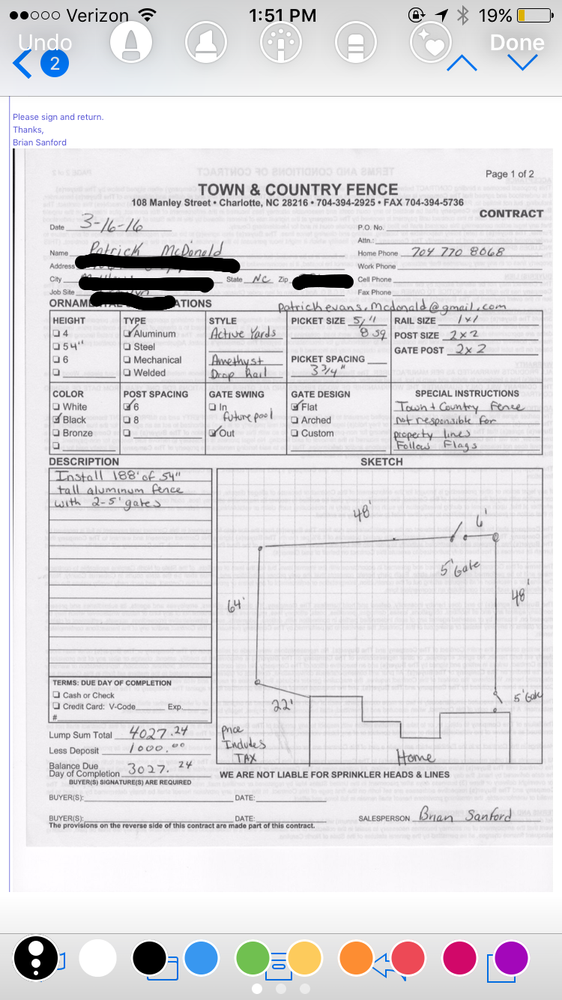 Verizon 1:51 PM 19%
Undo Done
2
Please sign and return.
Thanks,
Brian Sanford
Page 1 of 2
TOWN & COUNTRY FENCE
108 Manley Street • Charlotte, NC 28216 • 704-394-2925 • FAX 704-394-5736
CONTRACT
Date 3-16-16 P.O. No.
Attn.:
Name Patrick McDonald Home Phone 704 770 8068
Address Work Phone
City State NC Zip Cell Phone
Job Site Fax Phone
patrickevans.mcdonald@gmail.com
HEIGHT TYPE STYLE PICKET SIZE 5/8" RAIL SIZE 1x1
4 Aluminum Active Yards sq POST SIZE 2x2
54" Steel GATE POST 2x2
6 Mechanical Amethyst PICKET SPACING
Welded Drop Rail 3 3/4"
COLOR POST SPACING GATE SWING GATE DESIGN SPECIAL INSTRUCTIONS
White 6 In Flat Town & Country Fence
Black 8 Future pool Arched not responsible for
Bronze Out Custom property lines
Follow Flags
DESCRIPTION SKETCH
Install 188' of 54"
tall aluminum fence
with 2-5' gates
48'
6'
5' Gate
64'
48'
22'
5' Gate
Home
TERMS: DUE DAY OF COMPLETION
Cash or Check
Credit Card: V-Code Exp.
#
Lump Sum Total 4027.24 Price
Less Deposit 1000.00 Includes
TAX
Balance Due
Day of Completion 3027.24
WE ARE NOT LIABLE FOR SPRINKLER HEADS & LINES
BUYER(S) SIGNATURE(S) ARE REQUIRED
BUYER(S): DATE:
BUYER(S): DATE: SALESPERSON Brian Sanford
The provisions on the reverse side of this contract are made part of this contract.